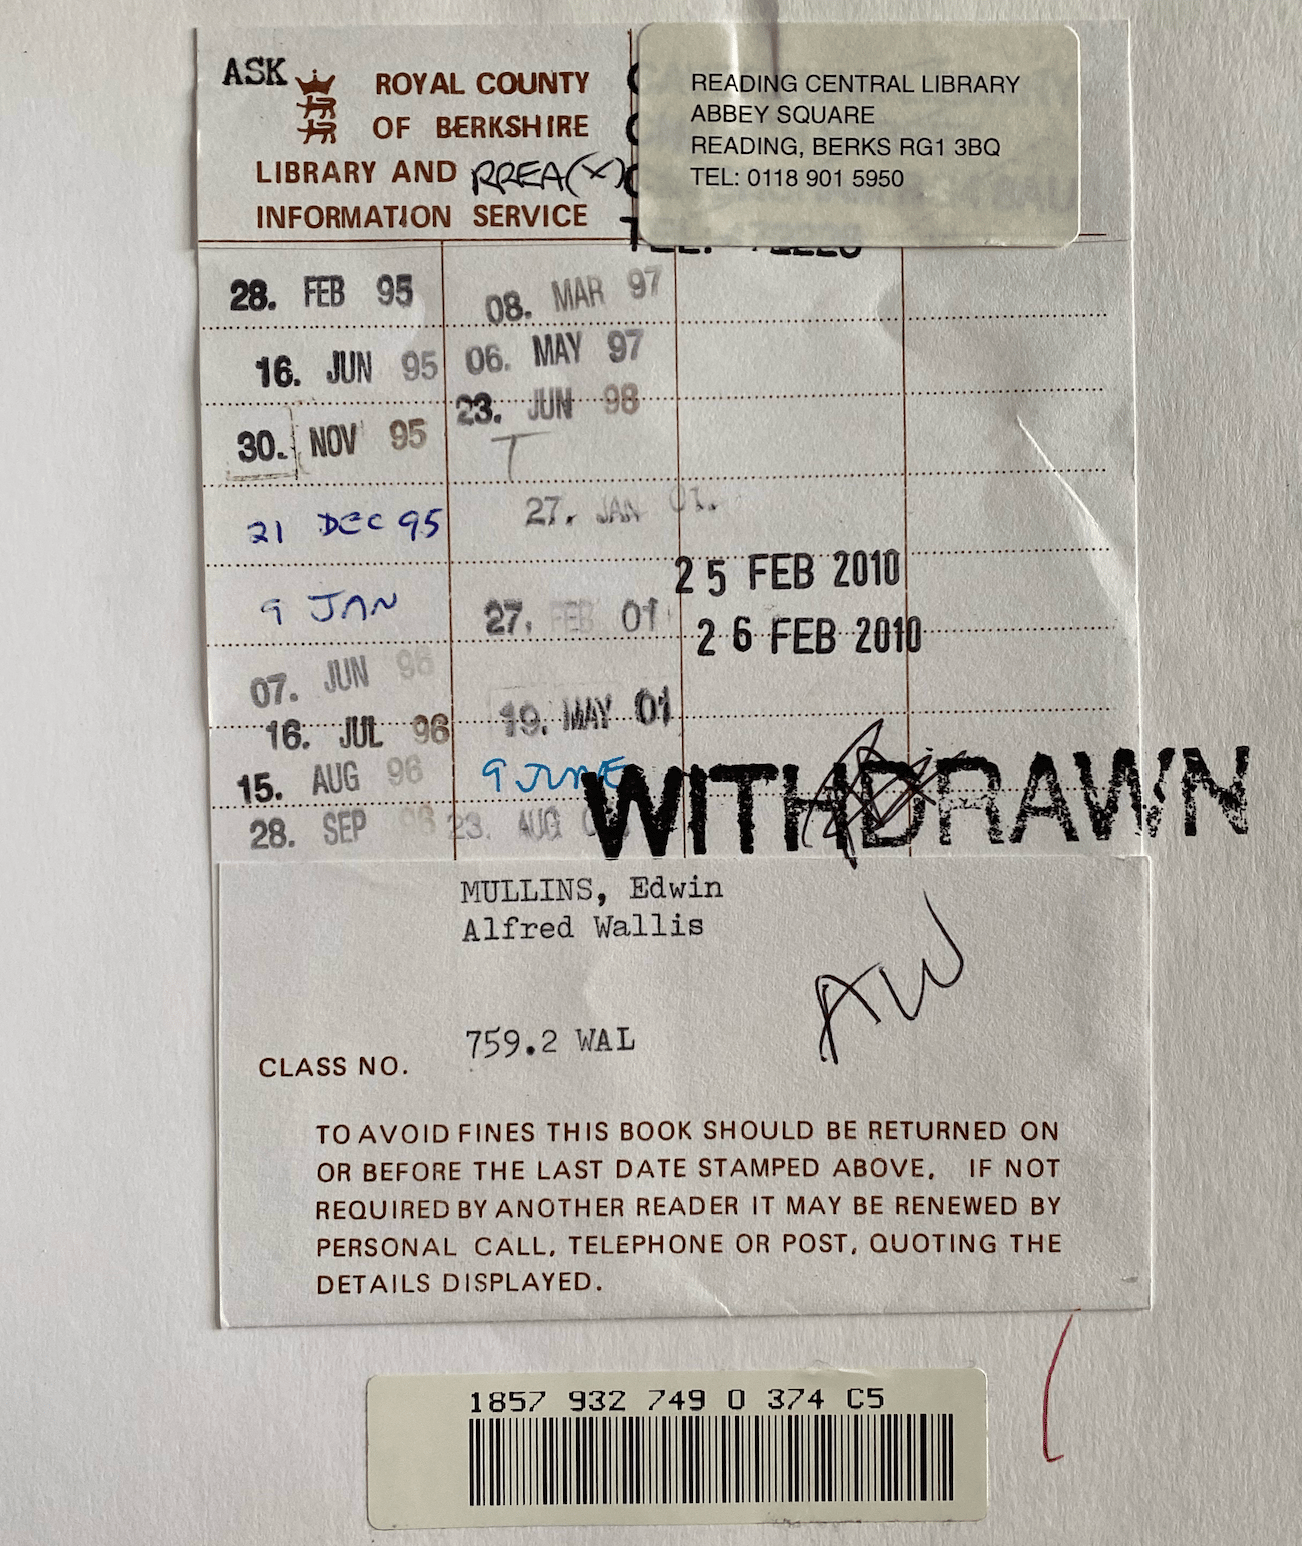 ASK
ROYAL COUNTY
OF BERKSHIRE
LIBRARY AND RREA(X)
INFORMATION SERVICE
READING CENTRAL LIBRARY
ABBEY SQUARE
READING, BERKS RG1 3BQ
TEL: 0118 901 5950
28. FEB 95
16. JUN 95
30. NOV 95
21 DEC 95
9 JAN
07. JUN 96
16. JUL 96
15. AUG 96
28. SEP 96
08. MAR 97
06. MAY 97
23. JUN 98
T
27. JAN 01.
27. FEB 01
19. MAY 01
9 JUNE
23. AUG
25 FEB 2010
26 FEB 2010
WITHDRAWN
MULLINS, Edwin
Alfred Wallis
AW
759.2 WAL
CLASS NO.
TO AVOID FINES THIS BOOK SHOULD BE RETURNED ON
OR BEFORE THE LAST DATE STAMPED ABOVE. IF NOT
REQUIRED BY ANOTHER READER IT MAY BE RENEWED BY
PERSONAL CALL, TELEPHONE OR POST, QUOTING THE
DETAILS DISPLAYED.
1857 932 749 0 374 C5